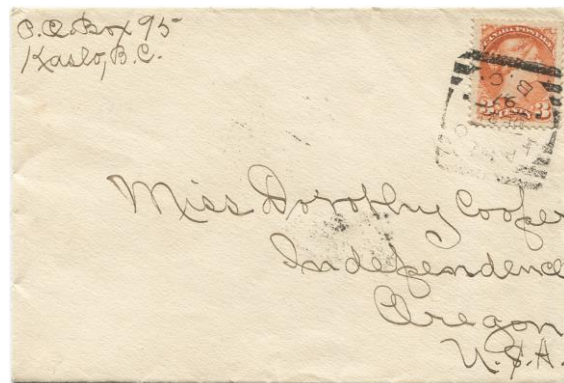 P.O. Box 95
Kaslo, B.C.
CANADA POSTAGE
Miss Dorothy Cooper
Independence
Oregon
U.S.A.